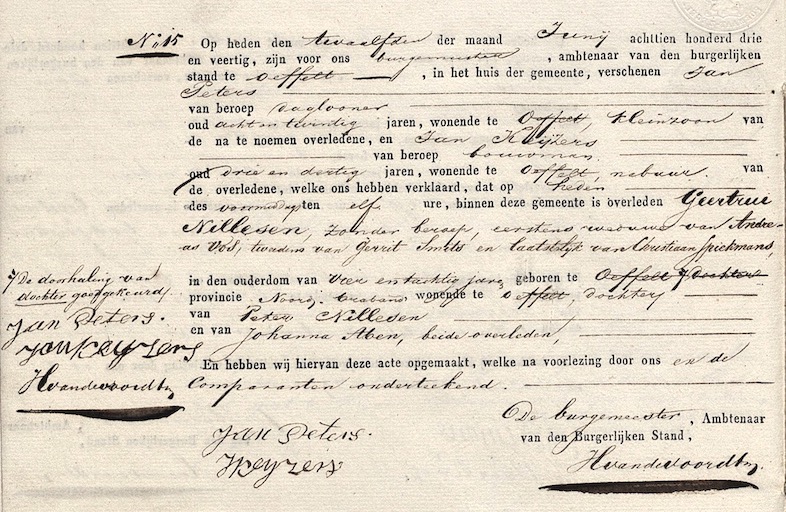 N: 15
Op heden den twaalfden der maand Junij achttien honderd drie
en veertig, zijn voor ons burgemeester, ambtenaar van den burgerlijken
stand te Oeffelt, in het huis der gemeente, verschenen Jan
Peters
van beroep daglooner
oud acht en twintig jaren, wonende te Oeffelt, kleinzoon van
de na te noemen overledene, en Jan Keijzers
van beroep bouwman,
oud drie en dertig jaren, wonende te Oeffelt, nebuur. van
de overledene, welke ons hebben verklaard, dat op heden
des voormiddag ten elf ure, binnen deze gemeente is overleden Geertrui
Nillesen, zonder beroep, eerstens weduwe van Andre-
as Vos, twedens van Gerrit Smits en laatstelijk van Christiaan Spiekmans,
in den ouderdom van Vier en tachtig jare, geboren te Oeffelt dochter
provincie Noord-braband wonende te Oeffelt dochter
van Peter Nillesen
en van Johanna Aben, beide overleden,
En hebben wij hiervan deze acte opgemaakt, welke na voorlezing door ons en de
Comparanten onderteekend.
De doorhaling van
dochter goedgekeurd
Jan Peters.
Jan Keyzers
Hvandevoordt
De burgemeester, Ambtenaar
van den Burgerlijken Stand,
Jan Peters.
Keyzers
Hvandevoordt